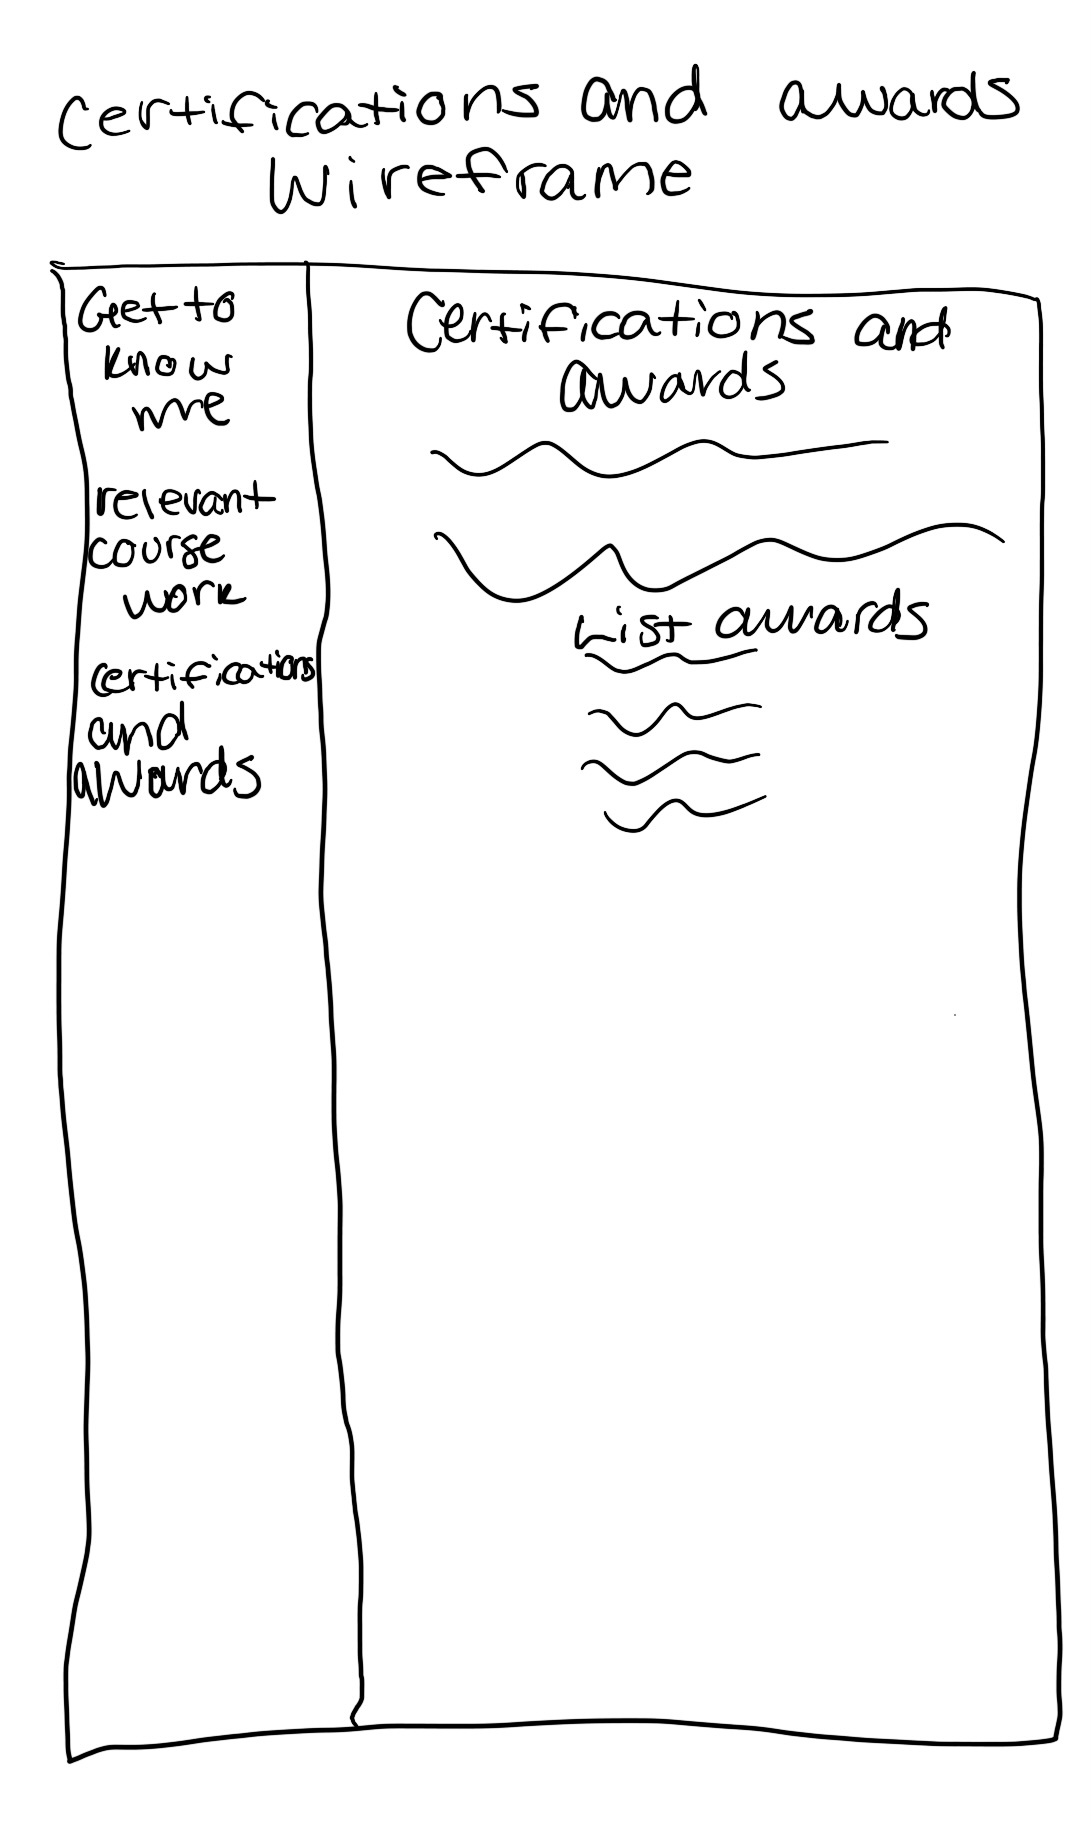 Certifications and awards
Wireframe
Get to
know
me
relevant
course
work
certifications
and
awards
Certifications and
awards
List awards